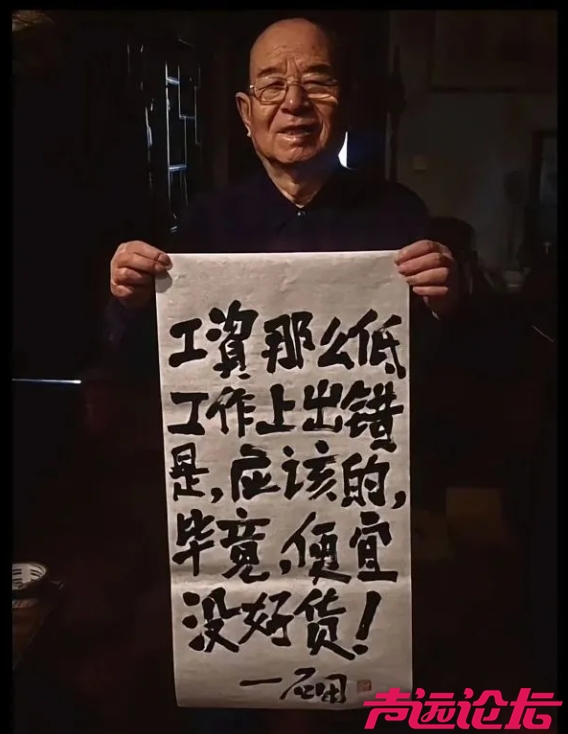 工資那么低
工作上出错
是,应该的,
毕竟,便宜
没好货!
声远论坛